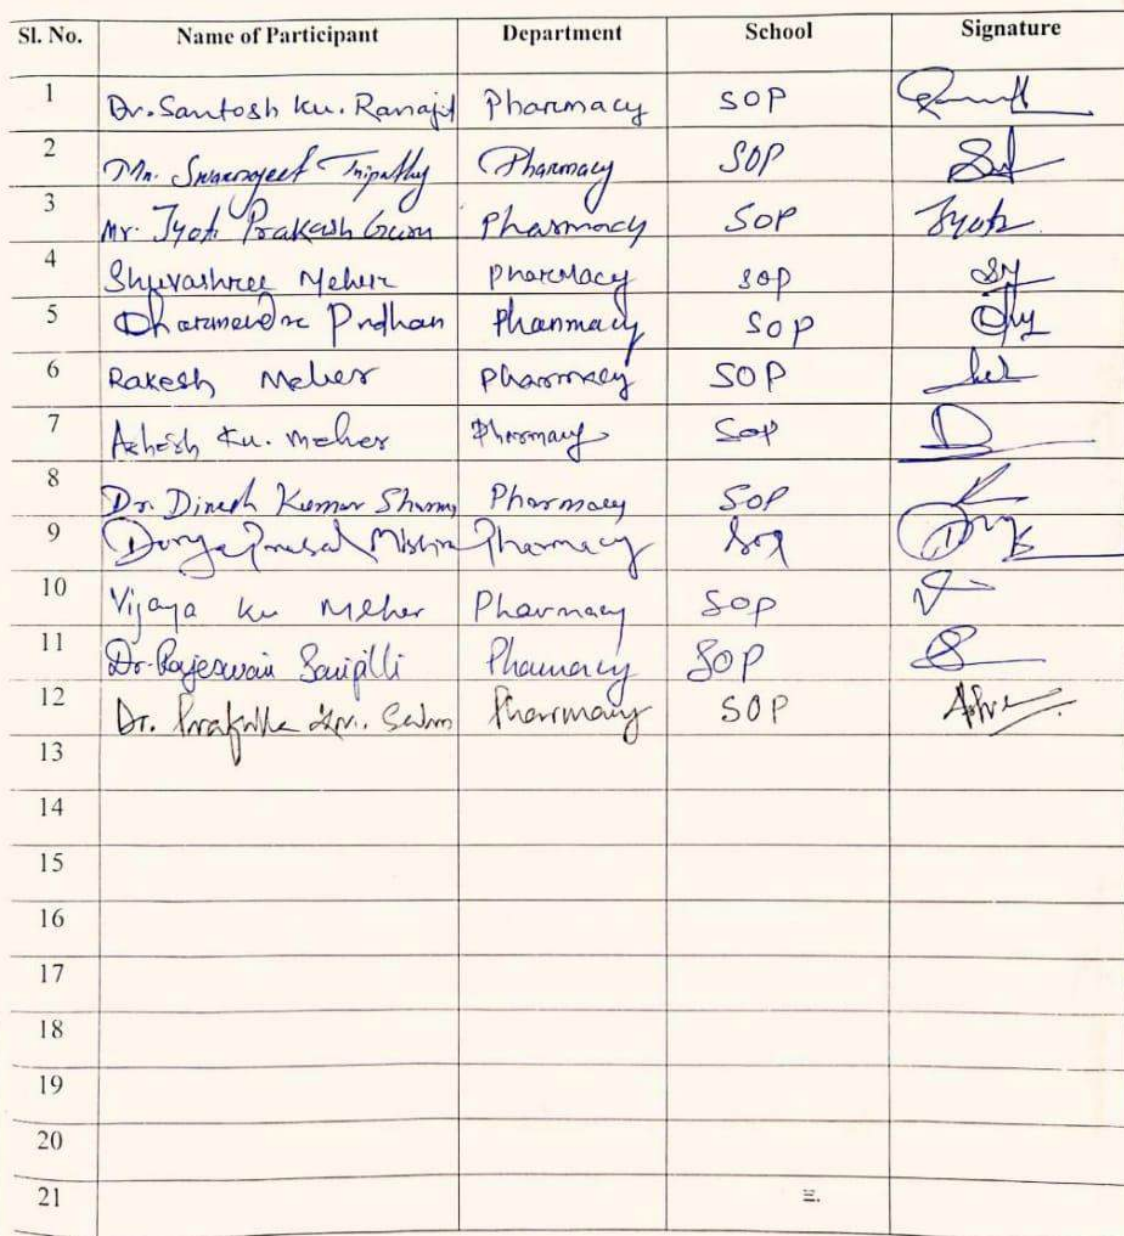 Sl. No. Name of Participant Department School Signature
1 Dr. Santosh Ku. Ranajit Pharmacy SOP
2 Mr. Swarnajeet Tripathy Pharmacy SOP
3 Mr. Jyoti Prakash Guru Pharmacy SOP Jyoti
4 Shuvashree Meher Pharmacy SOP
5 Dharmendra Prdhan Pharmacy SOP
6 Rakesh Meher Pharmacy SOP
7 Ashish Ku. Meher Pharmacy SOP
8 Dr. Dinesh Kumar Sharma Pharmacy SOP
9 Durga Prasad Mishra Pharmacy SOP
10 Vijaya Ku Meher Pharmacy SOP
11 Dr. Rajeswari Pharmacy SOP
12 Dr. Prafulla Pharmacy SOP
13
14
15
16
17
18
19
20
21